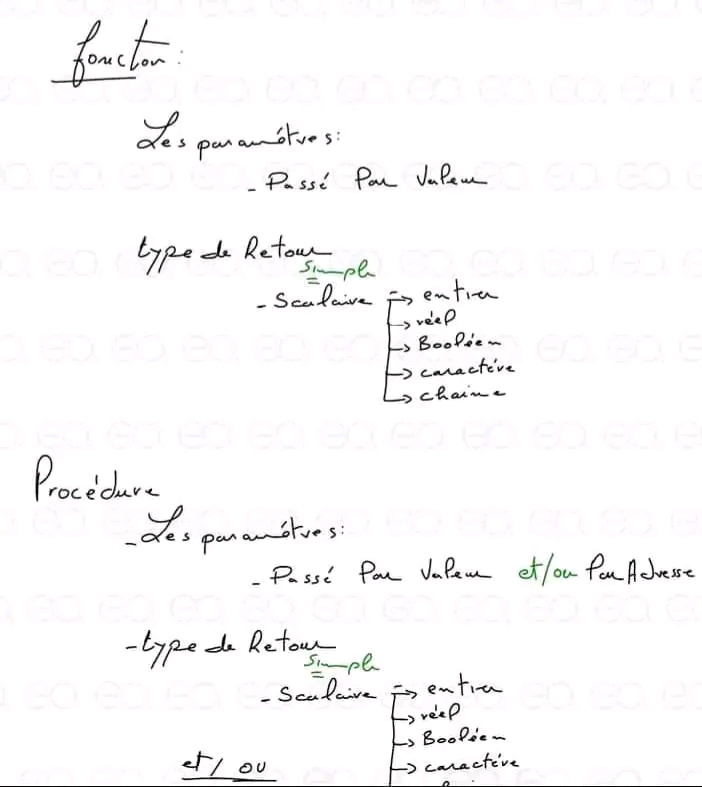 fonction :
Les paramètres :
- Passé Par Valeur
type de Retour
Simple
- Scalaire → entier
→ réel
→ Booléen
→ caractère
→ chaine
Procédure
- Les paramètres :
- Passé Par Valeur et/ou Par Adresse
- type de Retour
Simple
- Scalaire → entier
→ réel
→ Booléen
et/ ou → caractère